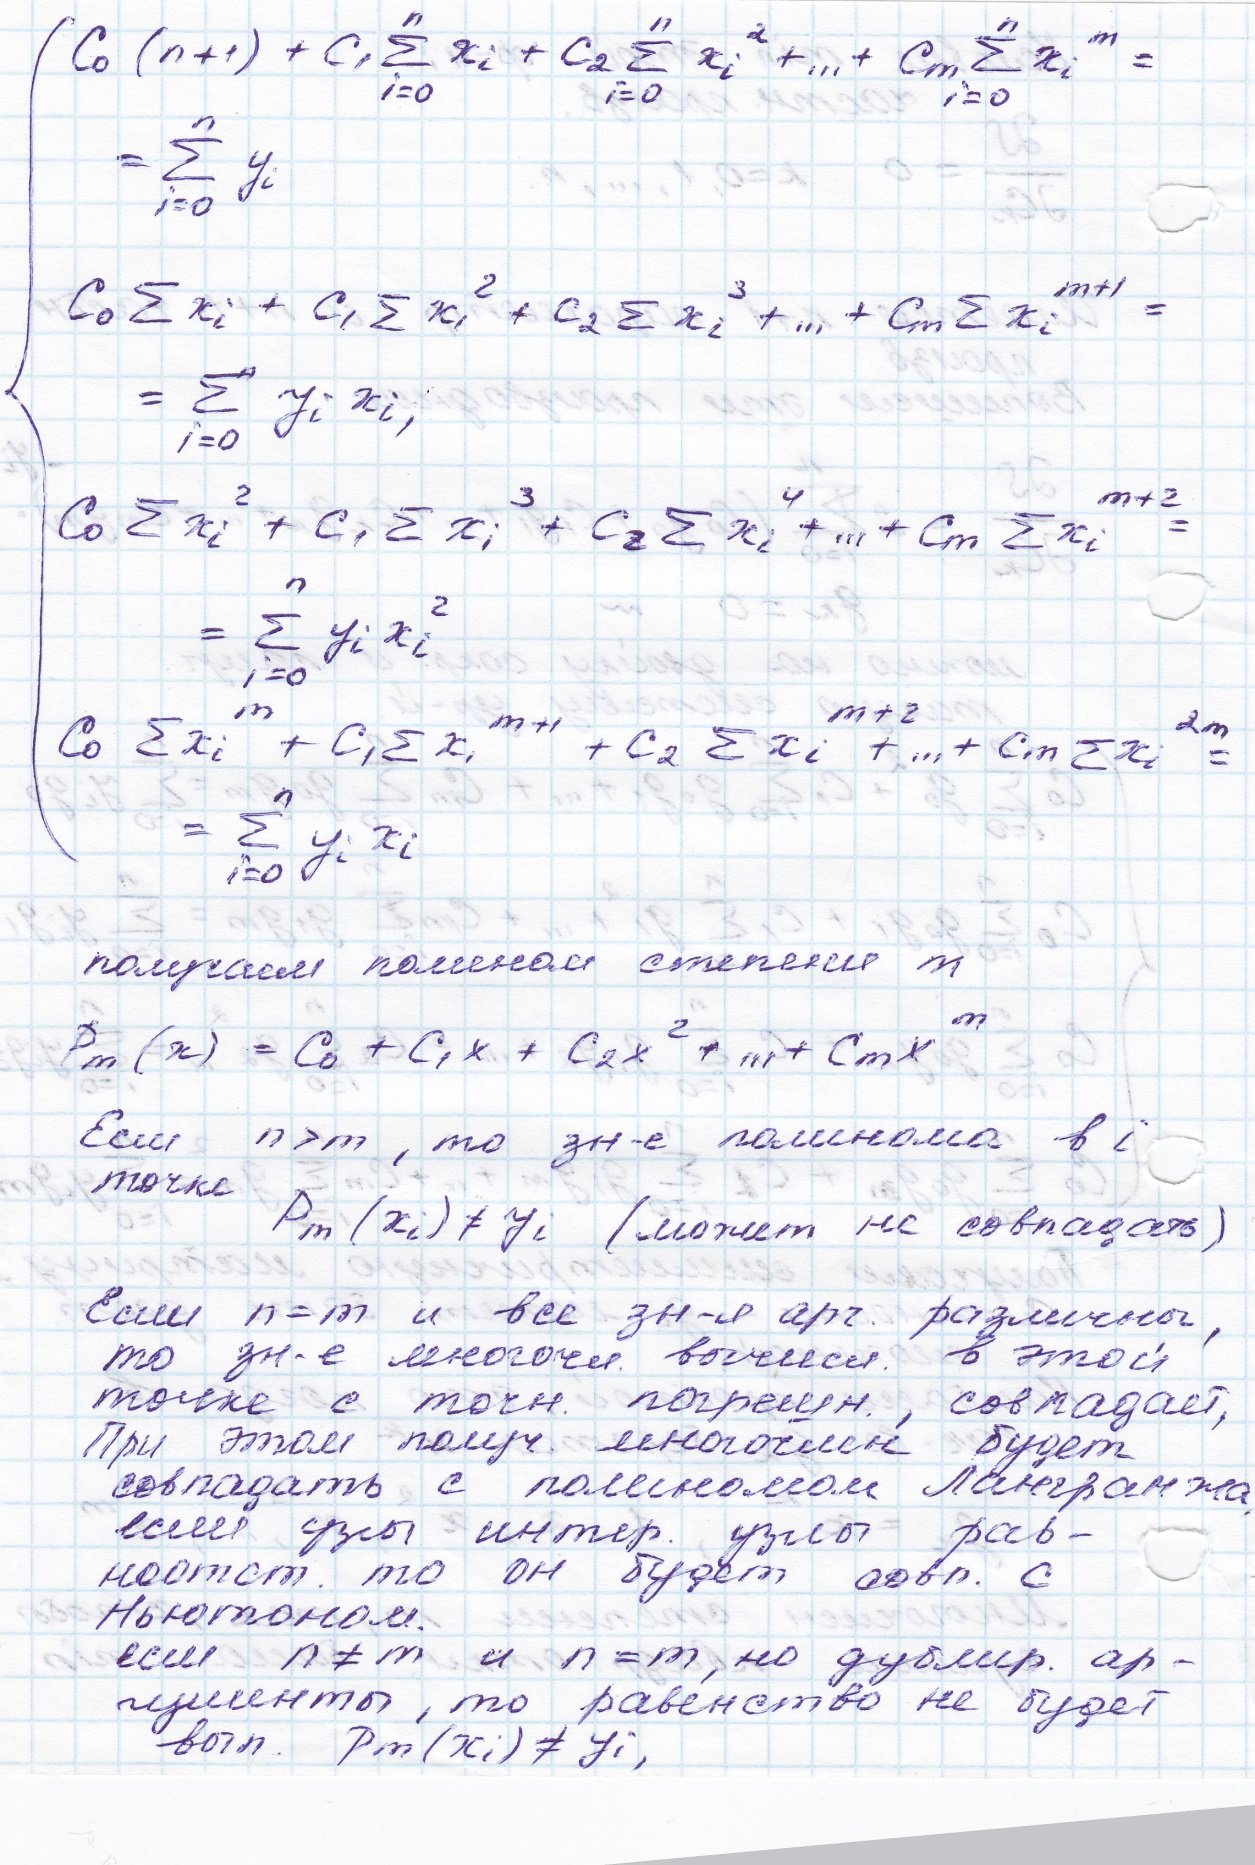 C₀ (n+1) + C₁ ∑ⁿᵢ₌₀ xᵢ + C₂ ∑ⁿᵢ₌₀ xᵢ² + ... + Cₘ ∑ⁿᵢ₌₀ xᵢᵐ =
= ∑ⁿᵢ₌₀ yᵢ
C₀ ∑ xᵢ + C₁ ∑ xᵢ² + C₂ ∑ xᵢ³ + ... + Cₘ ∑ xᵢᵐ⁺¹ =
= ∑ⁿᵢ₌₀ yᵢ xᵢ,
C₀ ∑ xᵢ² + C₁ ∑ xᵢ³ + C₂ ∑ xᵢ⁴ + ... + Cₘ ∑ xᵢᵐ⁺² =
= ∑ⁿᵢ₌₀ yᵢ xᵢ²
C₀ ∑ xᵢᵐ + C₁ ∑ xᵢᵐ⁺¹ + C₂ ∑ xᵢᵐ⁺² + ... + Cₘ ∑ xᵢ²ᵐ =
= ∑ⁿᵢ₌₀ yᵢ xᵢ
получаем полином степени m
Pₘ (x) = C₀ + C₁x + C₂x² + ... + Cₘxᵐ
Если n>m, то зн-е полинома в i
точке
Pₘ (xᵢ) ≠ yᵢ (может не совпадать)
Если n=m и все зн-я арг. различны,
то зн-е многочл. вычисл. в этой
точке с точн. погрешн., совпадает,
При этом получ. многочлен будет
совпадать с полиномом Лангранжа,
если узлы интер. узлы рав-
ноотст. то он будет совп. с
Ньютоном.
если n ≠ m и n = m, но дублир. ар-
гументы, то равенство не будет
вып. Pₘ(xᵢ) ≠ yᵢ,